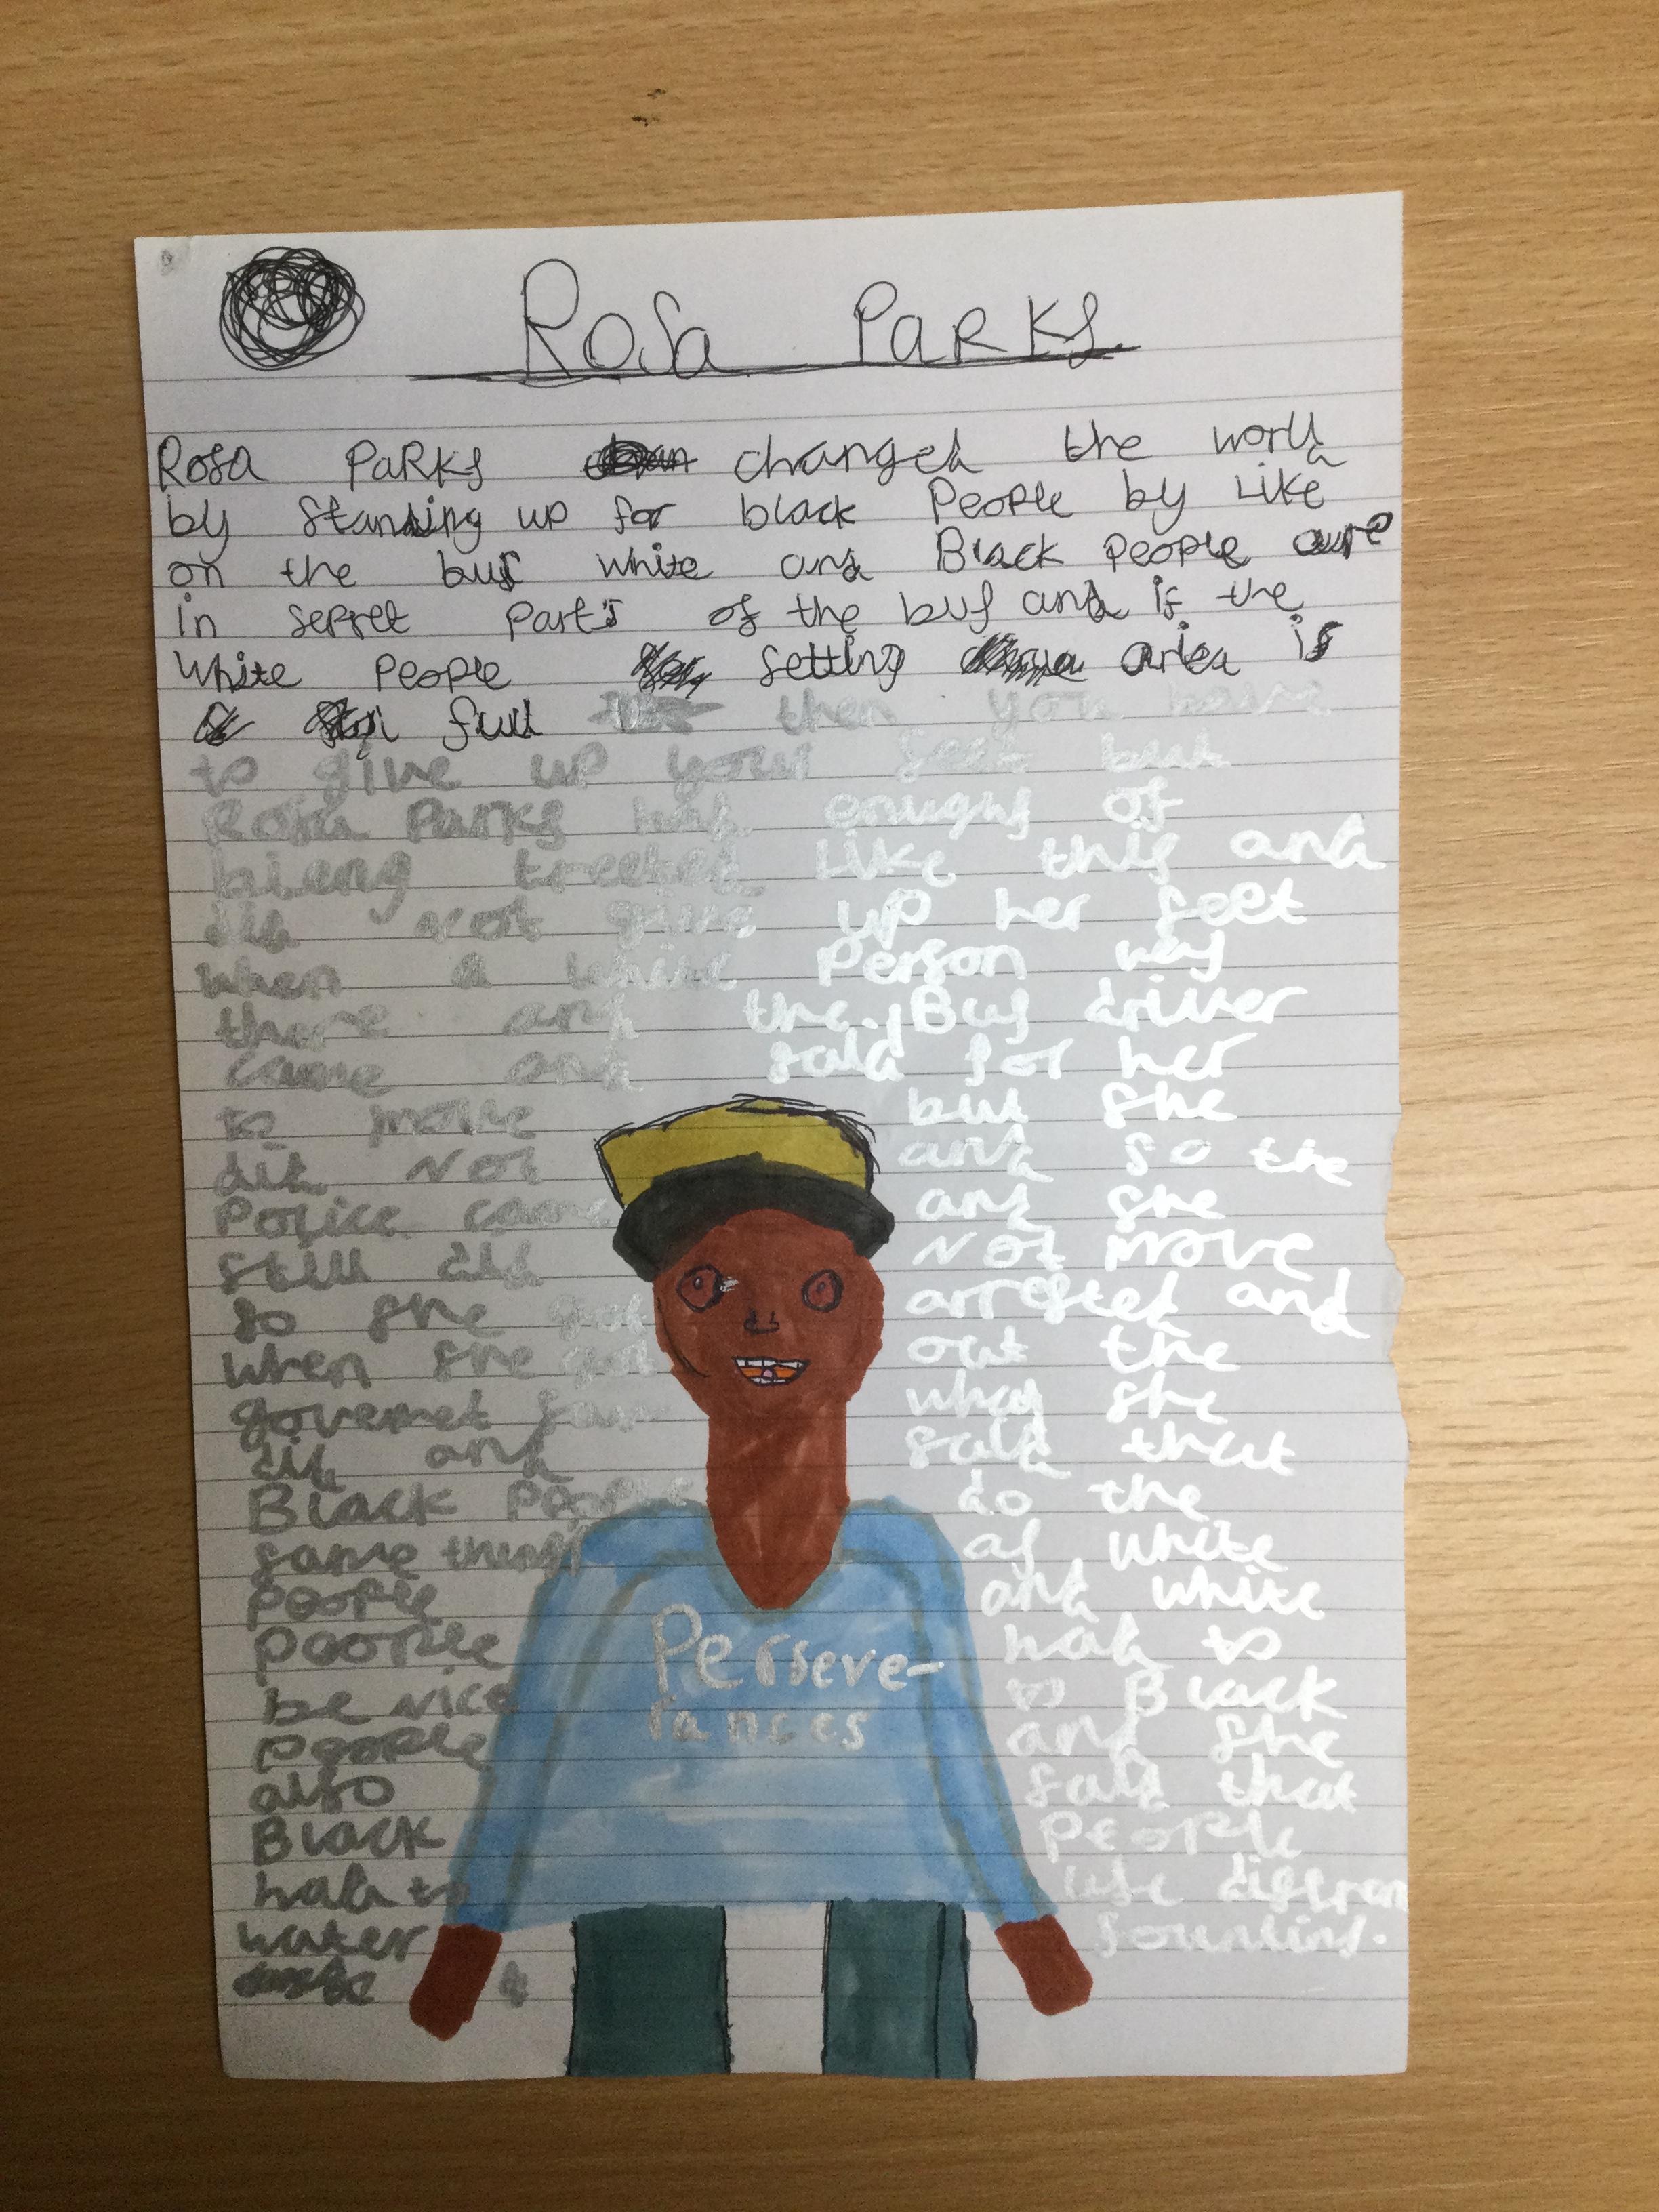 Rosa Parks
Rosa Parks changed the world
by standing up for black People by Like
on the bus white and Black people are
in sepret Parts of the bus and if the
White People setting area is
full then you have
to give up your seet but
Rosa Parks had enughf of
bieng treeted Like this and
did Not give up her seet
when a white Person way
there and the Bus driver
came and said for her
to move but she
did Not and so the
Police came and she
still did Not move
so she got arrested and
when she got out the
governet saw whay she
did and said that
Black People do the
same things as white
people and white
people had to
be Nice to Black
people and she
also said that
Black People
had to use differan
water fountins.
Perseve-
rances